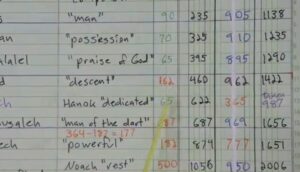 "man" 90 235 905 1138
an "possession" 70 325 910 1235
alalel "praise of God" 65 395 895 1290
d "descent" 162 460 962 1422
ch Hanok "dedicated" 65 622 365 taken 987
uselah "man of the dart" 187 687 969 1656
364-187=177
ech "powerful" 182 874 777 1651
Noach "rest" 500 1056 950 2006